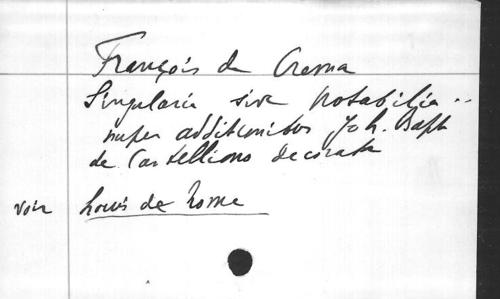 François de Crema
Singularia sive Notabilia ..
nuper additionibus Joh. Bapt.
de Castelliono decorata
voir Louis de Rome